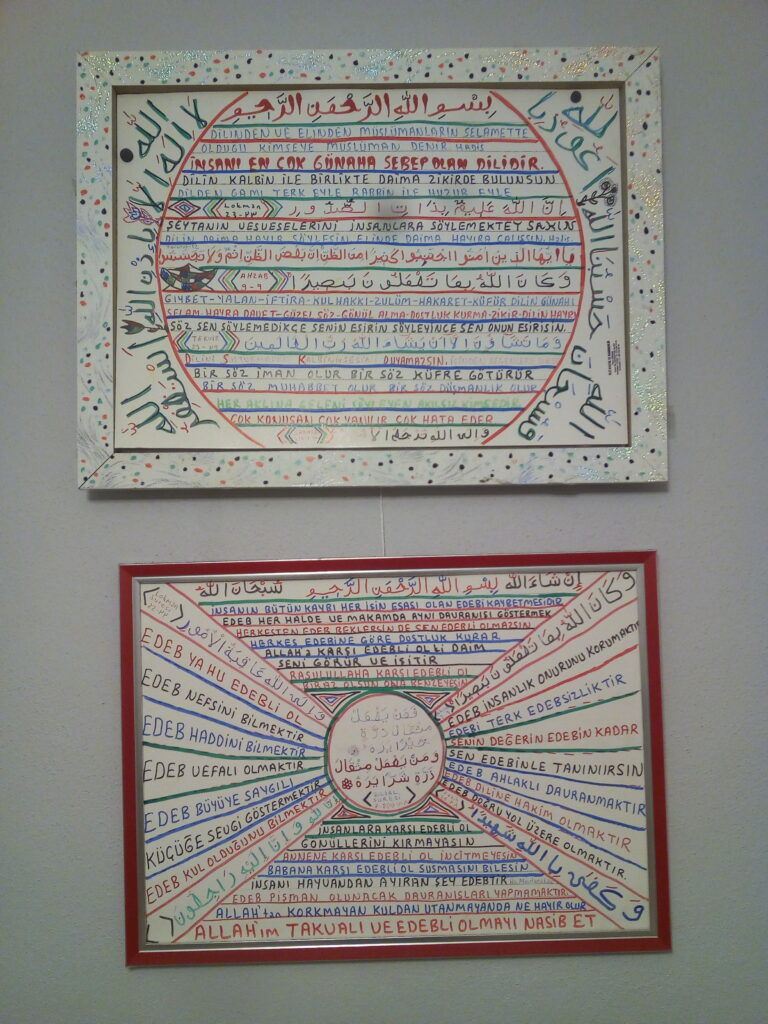 بِسْمِ اللهِ الرَّحْمَنِ الرَّحِيمِ
DİLİNDEN VE ELİNDEN MÜSLÜMANLARIN SELAMETTE
OLDUĞU KİMSEYE MÜSLÜMAN DENİR HADİS
İNSANI EN ÇOK GÜNAHA SEBEP OLAN DİLİDİR.
DİLİN KALBİN İLE BİRLİKTE DAİMA ZİKİRDE BULUNSUN
DİLDEN GAMI TERK EYLE RABBİN İLE HUZUR EYLE
Lokman 23-٢٣ إِنَّ اللهَ عَلِيمٌ بِذَاتِ الصُّدُورِ
ŞEYTANIN VESVESELERİNİ İNSANLARA SÖYLEMEKTEN SAKIN
DİLİN DAİMA HAYIR SÖYLESİN ELİNDE DAİMA HAYIRA ÇALIŞSIN. Hadis
يَا أَيُّهَا الَّذِينَ آمَنُوا اجْتَنِبُوا كَثِيرًا مِنَ الظَّنِّ إِنَّ بَعْضَ الظَّنِّ إِثْمٌ وَلَا تَجَسَّسُوا
AHZAB 9-٩ وَكَانَ اللهُ بِمَا تَعْمَلُونَ بَصِيرًا
GIYBET-YALAN-İFTİRA-KULHAKKI-ZULÜM-HAKARET-KÜFÜR DİLİN GÜNAHI
SELAM, HAYRA DAVET-GÜZEL SÖZ-GÖNÜL ALMA-DOSTLUK KURMA-ZİKİR-DİLİN HAYRI
SÖZ SEN SÖYLEMEDİKÇE SENİN ESİRİN SÖYLEYİNCE SEN ONUN ESİRİSİN.
TEKVİR وَمَا تَشَاؤُنَ إِلَّا أَنْ يَشَاءَ اللهُ رَبُّ الْعَالَمِينَ
DİLİNİ KALBİNİN SESİNİ DUYAMAZSIN.
BİR SÖZ İMAN OLUR BİR SÖZ KÜFRE GÖTÜRÜR
BİR SÖZ MUHABBET OLUR BİR SÖZ DÜŞMANLIK OLUR
HER AKLINA GELENİ SÖYLEYEN AKILSIZ KİMSEDİR
ÇOK KONUŞAN ÇOK YANILIR ÇOK HATA EDER
لَا إِلَهَ إِلَّا
حَسْبُنَا اللهُ
وَسُبْحَانَ اللهِ
إِنْ شَاءَ اللهُ بِسْمِ اللهِ الرَّحْمَنِ الرَّحِيمِ سُبْحَانَ اللهِ
İNSANIN BÜTÜN KAYBI HER İŞİN ESASI OLAN EDEBİ KAYBETMESİDİR
EDEB HER HALDE VE MAKAMDA AYNI DAVRANIŞI GÖSTERMEK
HERKESTEN EDEB BEKLERSİN DE SEN EDEBLİ OLMAZSIN
HERKES EDEBİNE GÖRE DOSTLUK KURAR
ALLAHA KARŞI EDEBLİ OL Kİ DAİM
SENİ GÖRÜR VE İŞİTİR
RASULULLAHA KARŞI EDEBLİ OL
BİRAZ OLSUN ONA BENZEYESİN
Lokman SURESİ 22-٢٢ وَإِلَى اللهِ عَاقِبَةُ الْأُمُورِ
EDEB YA HU EDEBLİ OL
EDEB NEFSİNİ BİLMEKTİR
EDEB HADDİNİ BİLMEKTİR
EDEB VEFALI OLMAKTIR
EDEB BÜYÜYE SAYGILI
KÜÇÜĞE SEVGİ GÖSTERMEKTİR
EDEB KUL OLDUĞUNU BİLMEKTİR
إِنَّا لِلَّهِ وَإِنَّا إِلَيْهِ رَاجِعُونَ
فَمَنْ يَعْمَلْ
مِثْقَالَ ذَرَّةٍ
خَيْرًا يَرَهُ
وَمَنْ يَعْمَلْ مِثْقَالَ
ذَرَّةٍ شَرًّا يَرَهُ
ZİLZAL SURESİ
وَكَانَ اللهُ بِمَا تَعْمَلُونَ بَصِيرًا
EDEB İNSANLIK ONURUNU KORUMAKTIR
EDEBİ TERK EDEBSİZLİKTİR
SENİN DEĞERİN EDEBİN KADAR
SEN EDEBİNLE TANINIIRSIN
EDEB AHLAKLI DAVRANMAKTIR
EDEB DİLİNE HAKİM OLMAKTIR
EDEB DOĞRU YOL ÜZERE OLMAKTIR.
وَكَفَى بِاللهِ شَهِيدًا
İNSANLARA KARŞI EDEBLİ OL
GÖNÜLLERİNİ KIRMAYASIN
ANNENE KARŞI EDEBLİ OL İNCİTMEYESİN
BABANA KARŞI EDEBLİ OL SUSMASINI BİLESİN
İNSANI HAYVANDAN AYIRAN ŞEY EDEBTİR
EDEB PİŞMAN OLUNACAK DAVRANIŞLARI YAPMAMAKTIR.
ALLAH'tan KORKMAYAN KULDAN UTANMAYANDA NE HAYIR OLUR
ALLAH'ım TAKVALI VE EDEBLİ OLMAYI NASİB ET